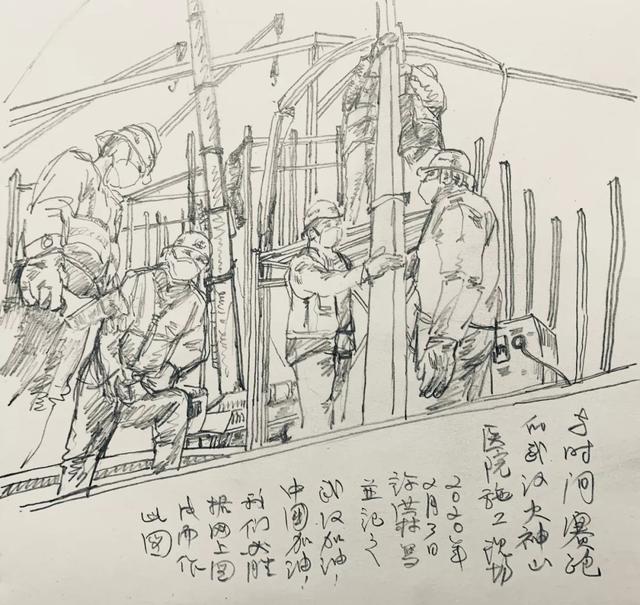 与时间赛跑
的武汉火神山
医院施工现场
2020年
2月3日
许洪写
並记之
武汉加油！
中国加油！
我们必胜
据网上图
片而作
此图